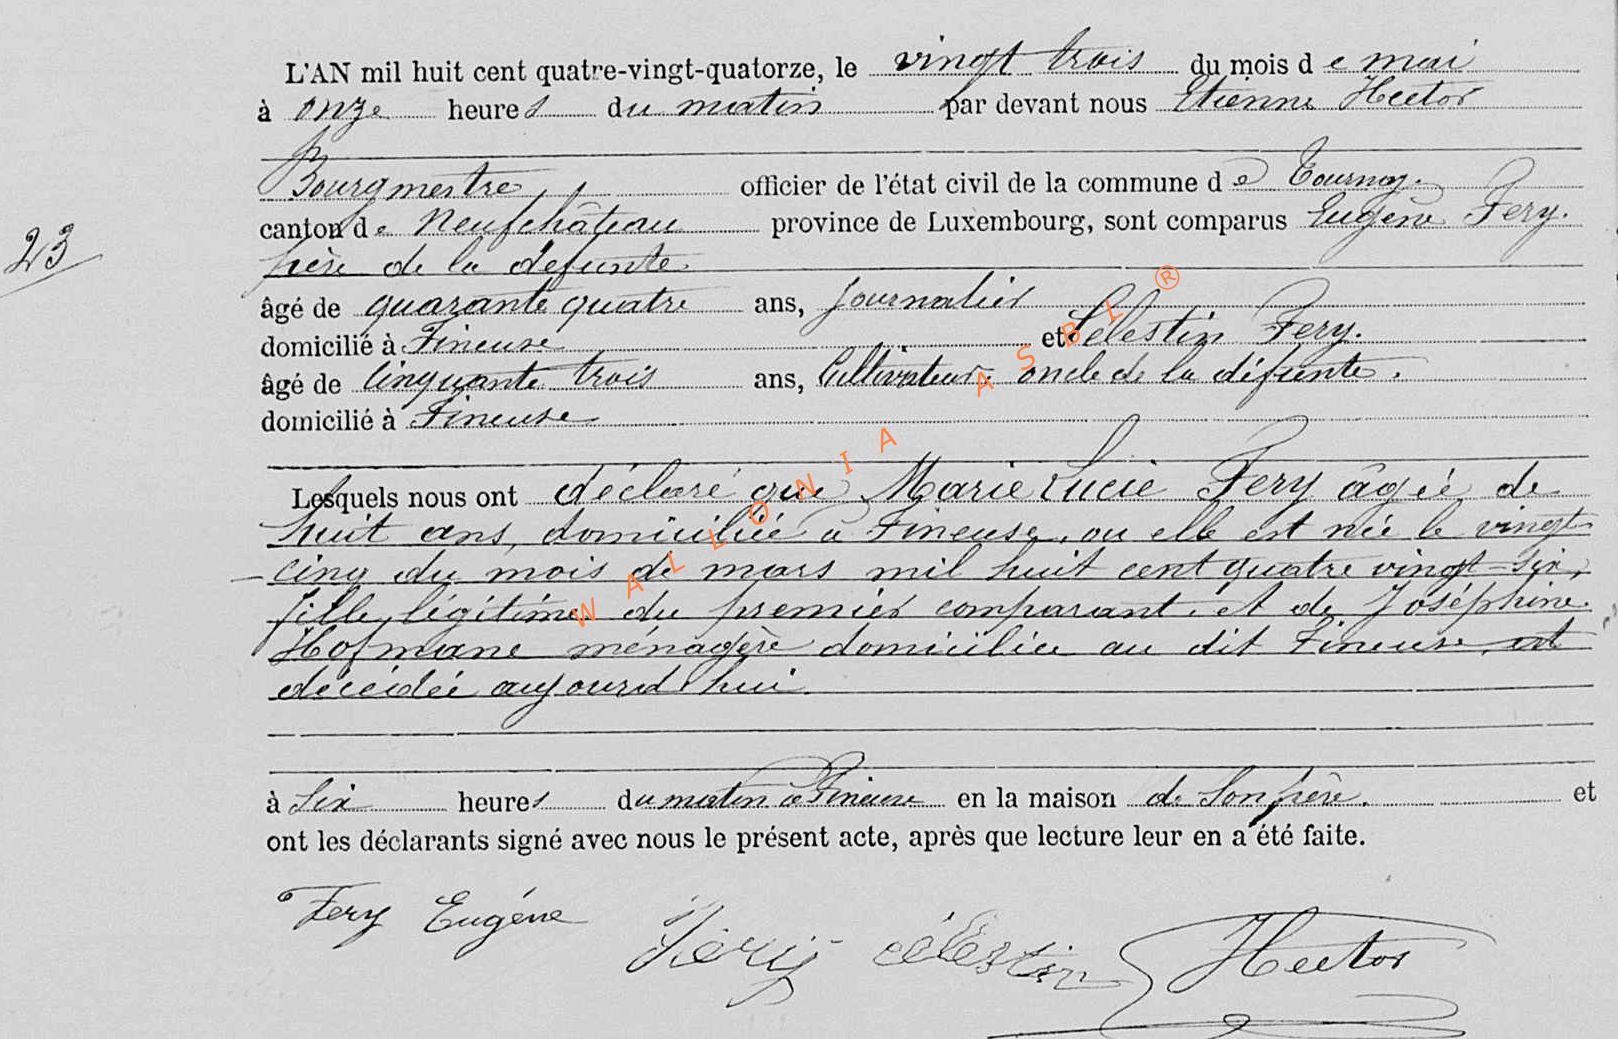 L'AN mil huit cent quatre-vingt-quatorze, le vingt trois du mois de mai
à onze heures du matin par devant nous Etienne Hector
Bourgmestre officier de l'état civil de la commune de Tournay.
canton de Neufchâteau province de Luxembourg, sont comparus Eugène Fery.
23
père de la défunte.
âgé de quarante quatre ans, journalier
domicilié à Fineuse et Célestin Fery.
âgé de Cinquante trois ans, Cultivateur. oncle de la défunte.
domicilié à Fineuse
Lesquels nous ont déclaré que Marie Lucie Fery âgée de
huit ans, domiciliée à Fineuse, ou elle est née le vingt
cinq du mois de mars mil huit cent quatre vingt-six,
fille légitime du premier comparant et de Joséphine
Hofmane ménagère domiciliée au dit Fineuse, est
décédée aujourd'hui.
à Six heures du matin à Fineuse en la maison de Son père. et
ont les déclarants signé avec nous le présent acte, après que lecture leur en a été faite.
Fery Eugéne Féry célestin Hector
WALLONIA ASBL ®